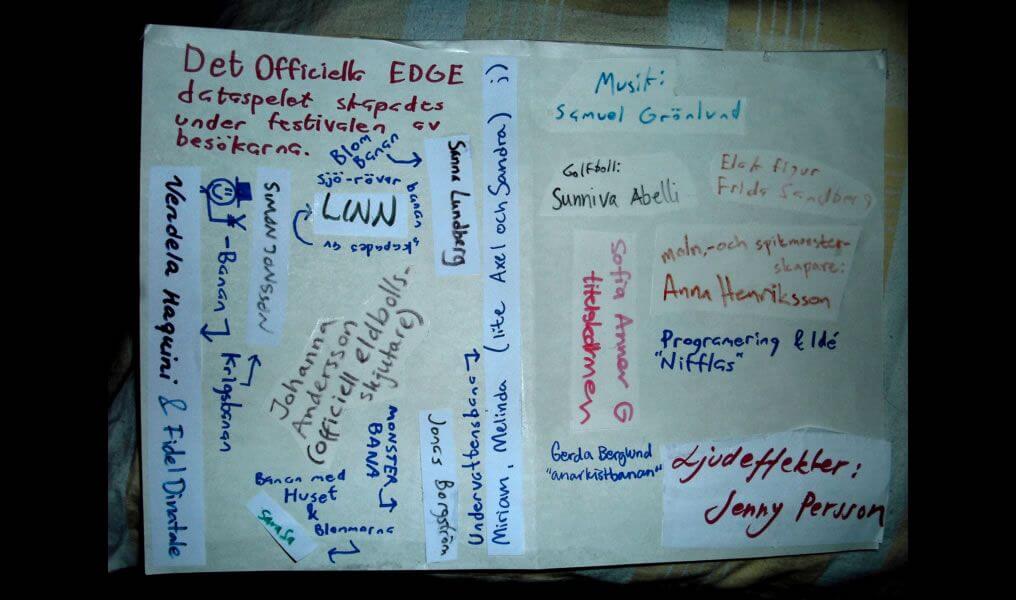 Det Officiella EDGE
dataspelet skapades
under festivalen av
besökarna.
Blom
Banan
Sanna Lundberg
Sjö-rövar
banan
skapades av
LINN
Simon Jonsson
-Banan
Vendela Haquini & Fidel Dinatale
Krigsbanan
Johanna
Andersson
(officiell eldbolls-
skjutare)
MONSTER
BANA
Jonas Borgström
Undervattensbana
Miriam, Melinda (lite Axel och Sandra) :)
Banan med
Huset
&
Blommorna
Musik:
Samuel Grönlund
Golfboll:
Sunniva Abelli
Elak figur
Frida Sandberg
Sofia Anner G
titelskärmen
moln,-och spikmonster-
skapare:
Anna Henriksson
Programering & Idé
"Nifflas"
Gerda Berglund
"anarkistbanan"
Ljudeffekter:
Jenny Persson